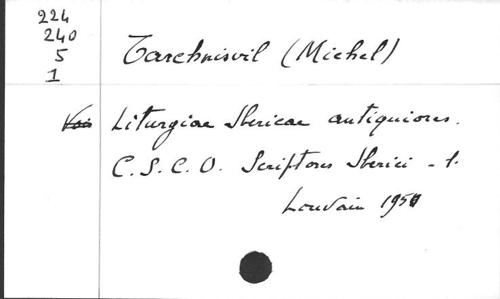 224
240
5
1
Tarchnisvil (Michel)
Voir Liturgiae Ibericae antiquiores.
C.S.C.O. Scriptores Iberici - 1.
Louvain 1950